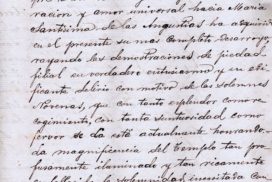 racion y amor universal hacia Maria
Santísima de las Angustias ha adquirido
en el presente su mas completo desarroyo,
rayando las demostraciones de piedad
filial en verdadero entusiasmo y en edi-
ficante delirio con motivo de las solemnes
Novenas, que con tanto esplendor como re-
cogimiento, con tanta suntuosidad como
fervor se da está actualmente honrando.
La magnificencia del Templo tan pro-
fusamente iluminado y tan ricamente
solemnidad inusitada con